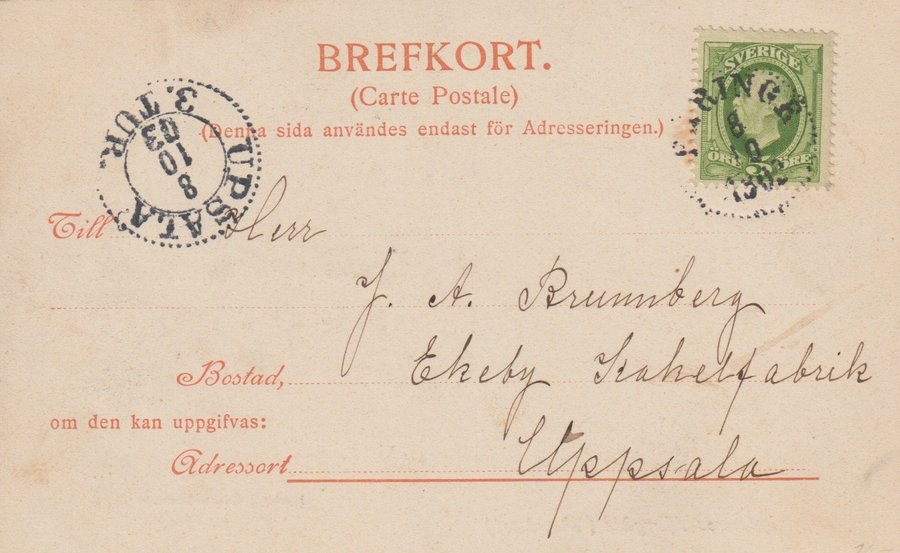 BREFKORT.
(Carte Postale)
(Denna sida användes endast för Adresseringen.)
SVERIGE
5
ÖRE ÖRE
UPSALA
3. TUR.
8
10
03
Till Herr
J. A. Brunnberg
Bostad, Ekeby Kakelfabrik
om den kan uppgifvas:
Adressort Uppsala